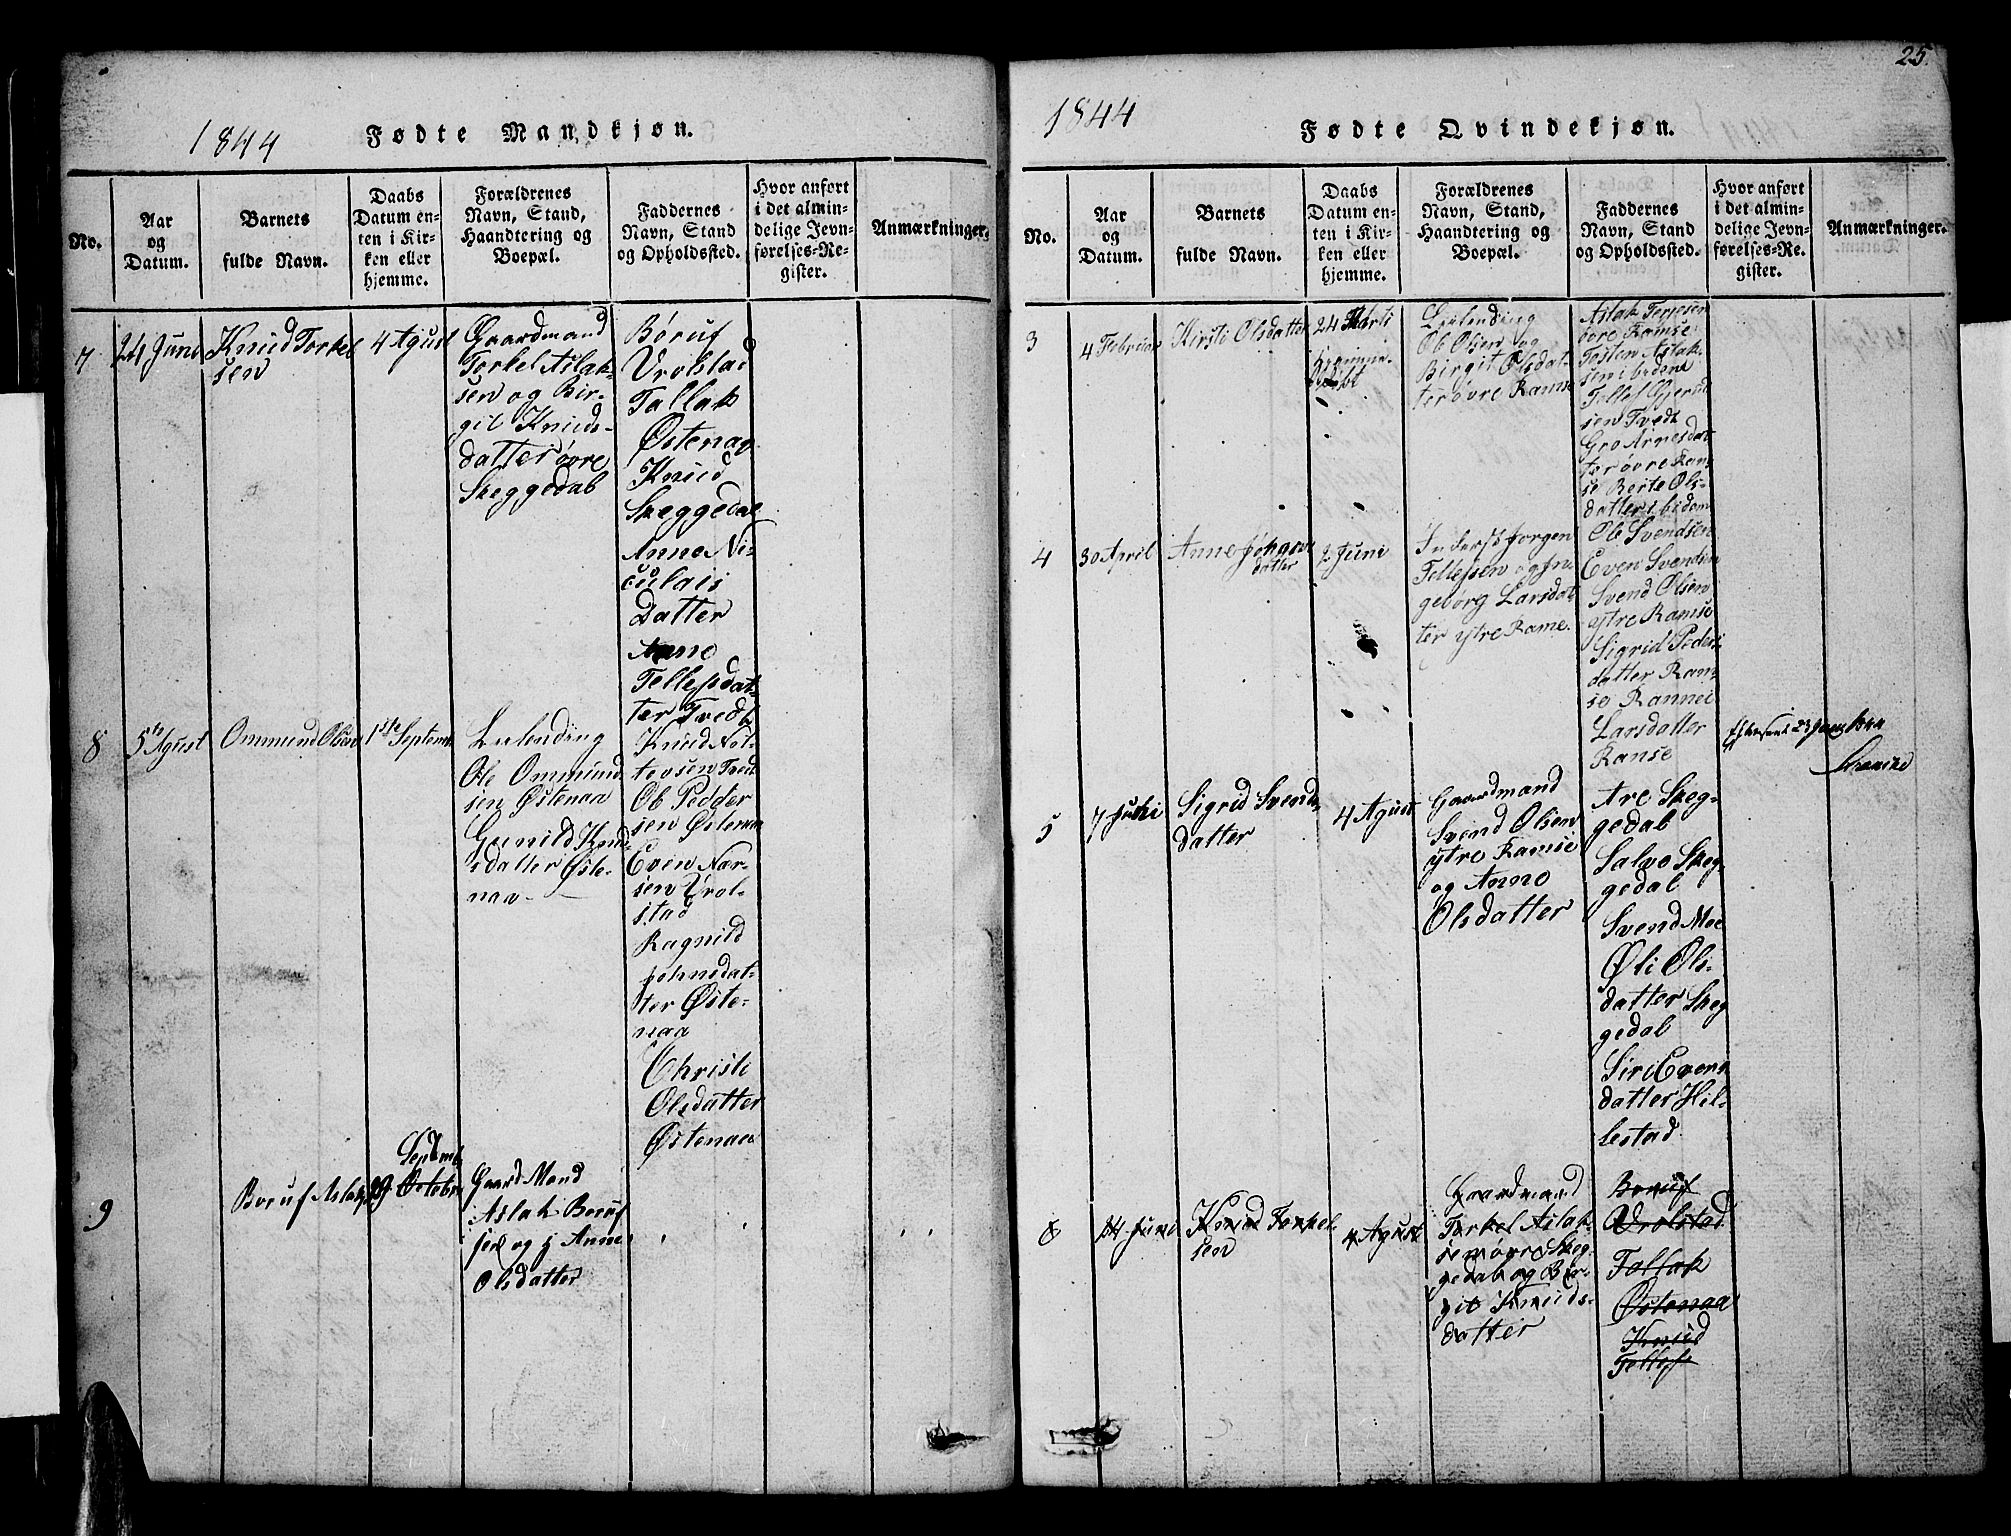 1844
Fødte Mandkjøn.
No.
Aar
og
Datum.
Barnets
fulde Navn.
Daabs
Datum en-
ten i Kir-
ken eller
hjemme.
Forældrenes
Navn, Stand,
Haandtering og
Boepæl.
Faddernes
Navn, Stand
og Opholdssted.
Hvor anført
i det almin-
delige Jevn-
førelses-Re-
gister.
Anmærkninger.
7
24 Juni
Knud Torkel
sen
4 Agust
Gaardmand
Torkel Aslak-
sen og Bir-
git Knuds-
datter øvre
Skeggedal
Børuf
Vrolstad
Tallak
Østenaa
Knud
Skeggedal
Anne Ni-
culais
Datter
Anne
Tellefsdat-
ter Tvedt
8
5te Agust
Ommund Olsen
1ste Septem
Leilending
Ole Ommund
sen Østenaa
Gunild Knud
sdatter Øste-
naa
Knud
Tvedt
Ole Pedder
sen Østenaa
Even
sen Vrol-
stad
Ragnild
Johnsdat-
ter Øste-
naa
Christi
Olsdatter
Østenaa
9
Boruf Aslaks
29
Septemb
Octobr
Gaard Mand
Aslak Boruf
sen og Anne
Olsdatter
25.
1844
Fødte Qvindekjøn.
No.
Aar
og
Datum.
Barnets
fulde Navn.
Daabs
Datum en-
ten i Kir-
ken eller
hjemme.
Forældrenes
Navn, Stand,
Haandtering og
Boepæl.
Faddernes
Navn, Stand
og Opholdssted.
Hvor anført
i det almin-
delige Jevn-
førelses-Re-
gister.
Anmærkninger.
3
4 Februar
Kirsti Olsdatter
24 Marti
Leilending
Ole Olsen og
Birgit Olsdat-
ter øvre Ramse
Aslak Terjesen
øvre Ramse
Tosten Aslak-
sen ibidem
Tellef Gjerul
sen Tvedt
Gro Arnesdat
ter øvre Ram-
se Berte Ols-
datter ibidem
4
30 April
Anne Jørgens
datter
2 Juni
Inderst Jørgen
Tellefsen og In-
geborg Larsdat
ter ytre Ramse.
Ole Svendsen
Even Svendsen
Svend Olsen
ytre Ramse
Sigrid Peders
datter Ram-
se Rannei
Larsdatter
Ramse
5
7 Juli
Sigrid Svends
datter
4 Agust
Gaardmand
Svend Olsen
ytre Ramse
og Anne
Olsdatter
Are Skeg-
gedal
Salve Skeg
gedal
Svend Moe
Øli Ols-
datter Skeg
gedal
Siri Evens
datter Hil-
lestad
6
14 Juni
Knud Torkel
sen
4 Agust
Gaardmand
Torkel Aslak-
sen øvre Skeg-
gedal og Bir-
git Knuds-
datter
Boruf
Vrolstad
Tallak
Østenaa
Knud
Tellefs